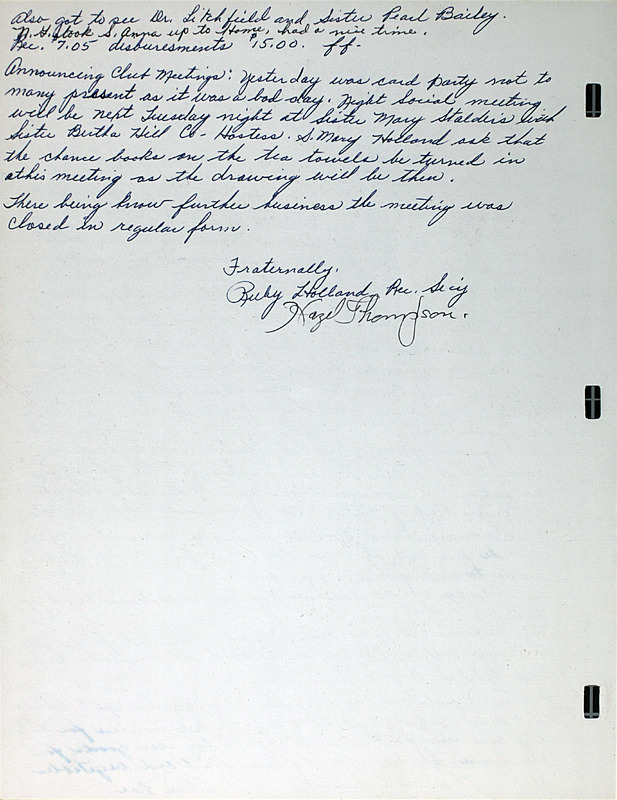 also got to see Dr. Litchfield and Sister Pearl Bailey.
N.G. took S. Anna up to Home, had a nice time.
Rec. $7.05 disburesments $15.00. ff-
Announcing Club Meetings: Yesterday was card party not to
many present as it was a bad day. Night Social meeting
will be next Tuesday night at Sister Mary Stalders with
Sister Bertha Hill Co-Hostess. S. Mary Holland ask that
the chance books on the tea towels be turned in
at this meeting as the drawing will be then.
There being know further business the meeting was
closed in regular form.
Fraternally,
Ruby Holland, Rec. Secy
Hazel Thompson.